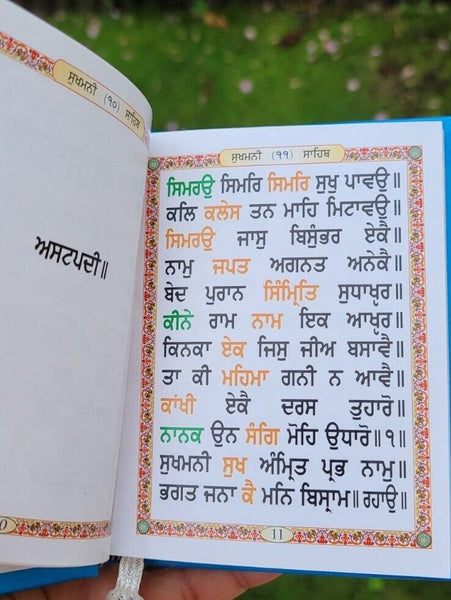 ਸੁਖਮਨੀ (੧੦) ਸਾਹਿਬ
ਅਸਟਪਦੀ॥
ਸੁਖਮਨੀ (੧੧) ਸਾਹਿਬ
ਸਿਮਰਉ ਸਿਮਰਿ ਸਿਮਰਿ ਸੁਖੁ ਪਾਵਉ॥
ਕਲਿ ਕਲੇਸ ਤਨ ਮਾਹਿ ਮਿਟਾਵਉ॥
ਸਿਮਰਉ ਜਾਸੁ ਬਿਸੁੰਭਰ ਏਕੈ॥
ਨਾਮੁ ਜਪਤ ਅਗਨਤ ਅਨੇਕੈ॥
ਬੇਦ ਪੁਰਾਨ ਸਿੰਮ੍ਰਿਤਿ ਸੁਧਾਖ੍ਯਰ॥
ਕੀਨੇ ਰਾਮ ਨਾਮ ਇਕ ਆਖ੍ਯਰ॥
ਕਿਨਕਾ ਏਕ ਜਿਸੁ ਜੀਅ ਬਸਾਵੈ॥
ਤਾ ਕੀ ਮਹਿਮਾ ਗਨੀ ਨ ਆਵੈ॥
ਕਾਂਖੀ ਏਕੈ ਦਰਸ ਤੁਹਾਰੋ॥
ਨਾਨਕ ਉਨ ਸੰਗਿ ਮੋਹਿ ਉਧਾਰੋ॥੧॥
ਸੁਖਮਨੀ ਸੁਖ ਅੰਮ੍ਰਿਤ ਪ੍ਰਭ ਨਾਮੁ॥
ਭਗਤ ਜਨਾ ਕੈ ਮਨਿ ਬਿਸ੍ਰਾਮ॥ਰਹਾਉ॥
11